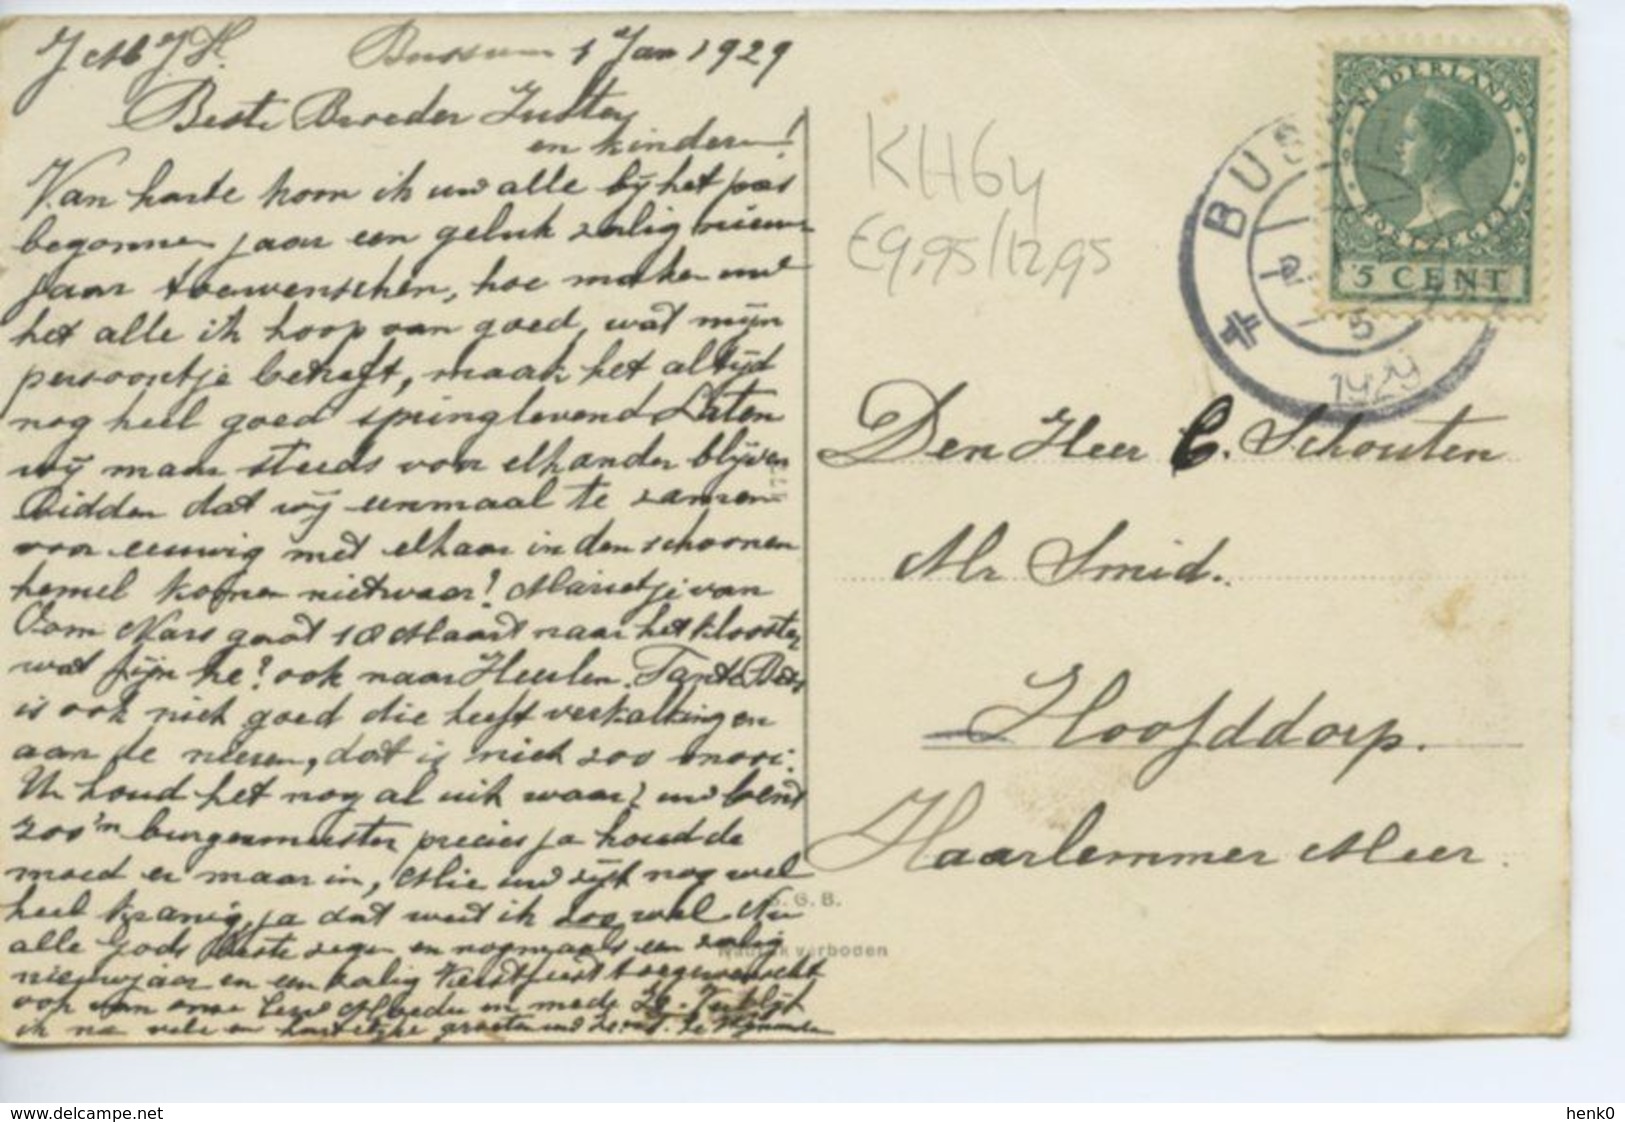 J M J H.
Bussum 1 Jan 1929
Beste Broeder Zuster
en kinderen!
Van harte kom ik uw alle bij het pas
begonnen jaar een geluk zalig nieuw
jaar toewenschen, hoe maken uwe
het alle ik hoop van goed, wat mijn
persoontje betreft, maak het altijd
nog heel goed springlevend Laten
wij maar steeds voor elkander blijven
Bidden dat wij eenmaal te samen
voor eeuwig met elkaar in den schoonen
hemel komen nietwaar? Marietje van
Oom Kars gaat 18 Maart naar het klooster
wat fijn he? ook naar Heerlen. Tante Bets
is ook niet goed die heeft verkalkingen
aan de nieren, dat is niet zoo mooi.
U houd het nog al uit waar? uw bent
zoo'n burgemeester precies ja houd de
moed er maar in, Mie uw zijt nog wel
heel kranig, ja dat weet ik zoo wel. Nu
alle Gods beste zegen en nogmaals een zalig
nieuwjaar en een zalig Kerstfeest toegewenscht
ook van onze Eerw Moeder en mede Zr. Verblijf
ik na vele en hartelijke groeten uw
KH64
€9,95/12,95
BUSSUM
5
1929
NEDERLAND
POSTZEGEL
5 CENT
Den Heer C. Schouten
Mr Smid.
Hoofddorp.
Haarlemmer Meer.
S. G. B.
Nadruk verboden
www.delcampe.net
henk0